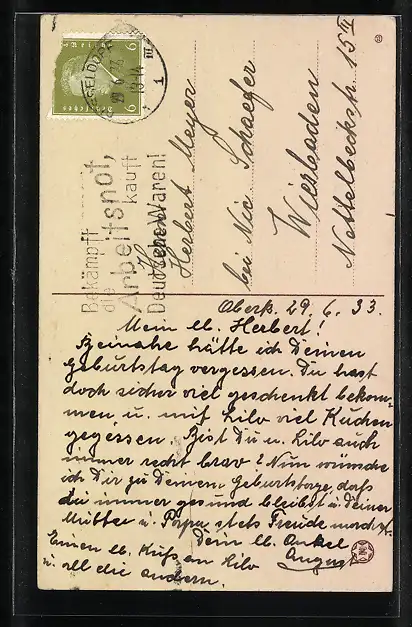 DÜSSELDORF
29.6.33
13-14
1
III
Deutsches Reich
6 6
Bekämpft
die
Arbeitsnot,
kauft
Deutsche Waren!
Herrn
Herbert Meyer
bei Nic. Schaefer
Wiesbaden
Nettelbeckstr 15 III
Oberk. 29. 6. 33.
Mein lb. Herbert!
Beinahe hätte ich Deinen
Geburtstag vergessen. Du hast
doch sicher viel geschenkt bekom-
men u. mit Lilo viel Kuchen
gegessen. Bist Du u. Lilo auch
immer recht brav? Nun wünsche
ich Dir zu Deinem Geburtstage, daß
du immer gesund bleibst u. Deiner
Mutter u. Papa stets Freude machst.
Dein lb. Onkel
August
Einen lb. Kuß an Lilo
u. all die andern.